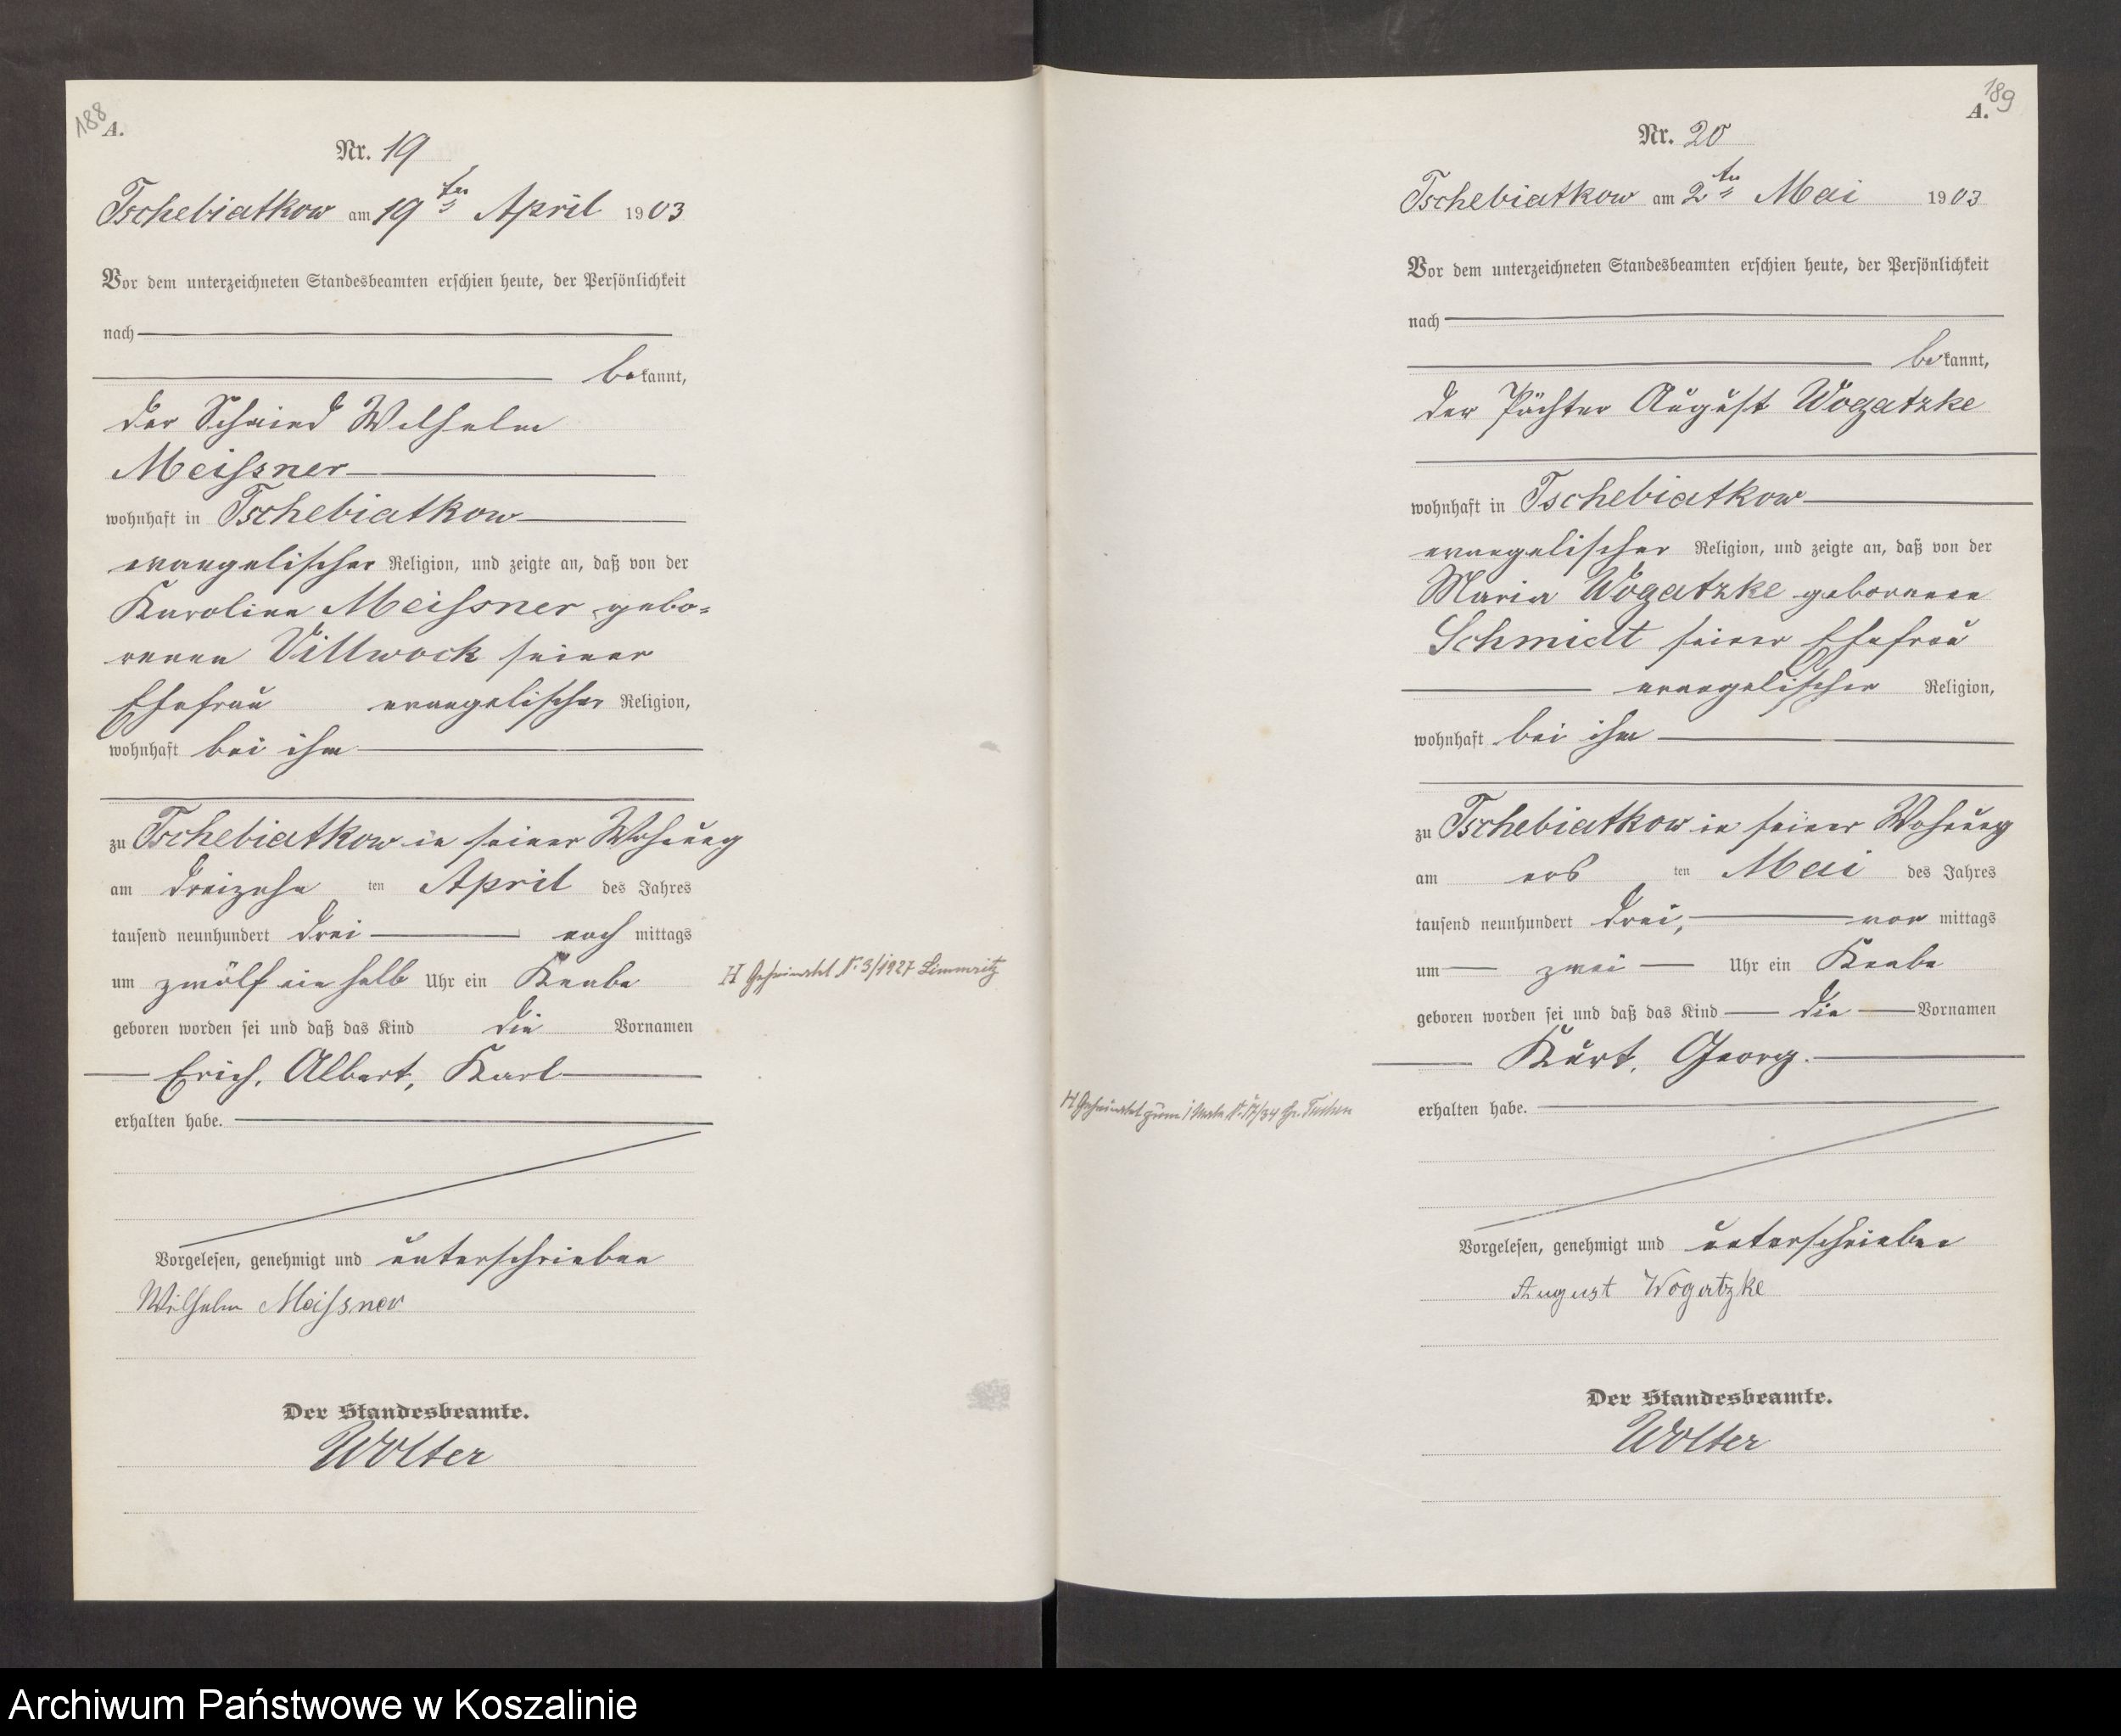 188
A.
Nr. 19
Tschebiatkow am 19ten April 1903
Vor dem unterzeichneten Standesbeamten erschien heute, der Persönlichkeit
nach
bekannt,
der Schmied Wilhelm
Meissner
wohnhaft in Tschebiatkow
evangelischer Religion, und zeigte an, daß von der
Karoline Meissner gebo=
renen Villwock seiner
Ehefrau evangelischer Religion,
wohnhaft bei ihm
zu Tschebiatkow in seiner Wohnung
am dreizehn ten April des Jahres
tausend neunhundert drei nach mittags
um zwölf ein halb Uhr ein Knabe
geboren worden sei und daß das Kind die Vornamen
Erich, Albert, Karl
erhalten habe.
Vorgelesen, genehmigt und unterschrieben
Wilhelm Meissner
Der Standesbeamte.
Wolter
H Geheiratet N. 3/1927 Limmritz
189
A.
Nr. 20
Tschebiatkow am 2ten Mai 1903
Vor dem unterzeichneten Standesbeamten erschien heute, der Persönlichkeit
nach
bekannt,
der Pächter August Wogatzke
wohnhaft in Tschebiatkow
evangelischer Religion, und zeigte an, daß von der
Maria Wogatzke geborenen
Schmidt seiner Ehefrau
evangelischer Religion,
wohnhaft bei ihm
zu Tschebiatkow in seiner Wohnung
am ers ten Mai des Jahres
tausend neunhundert drei, vor mittags
um zwei Uhr ein Knabe
geboren worden sei und daß das Kind die Vornamen
Kurt, Georg.
erhalten habe.
Vorgelesen, genehmigt und unterschrieben
August Wogatzke
Der Standesbeamte.
Wolter
H Geheiratet zum Gr. Tuchen
Archiwum Państwowe w Koszalinie